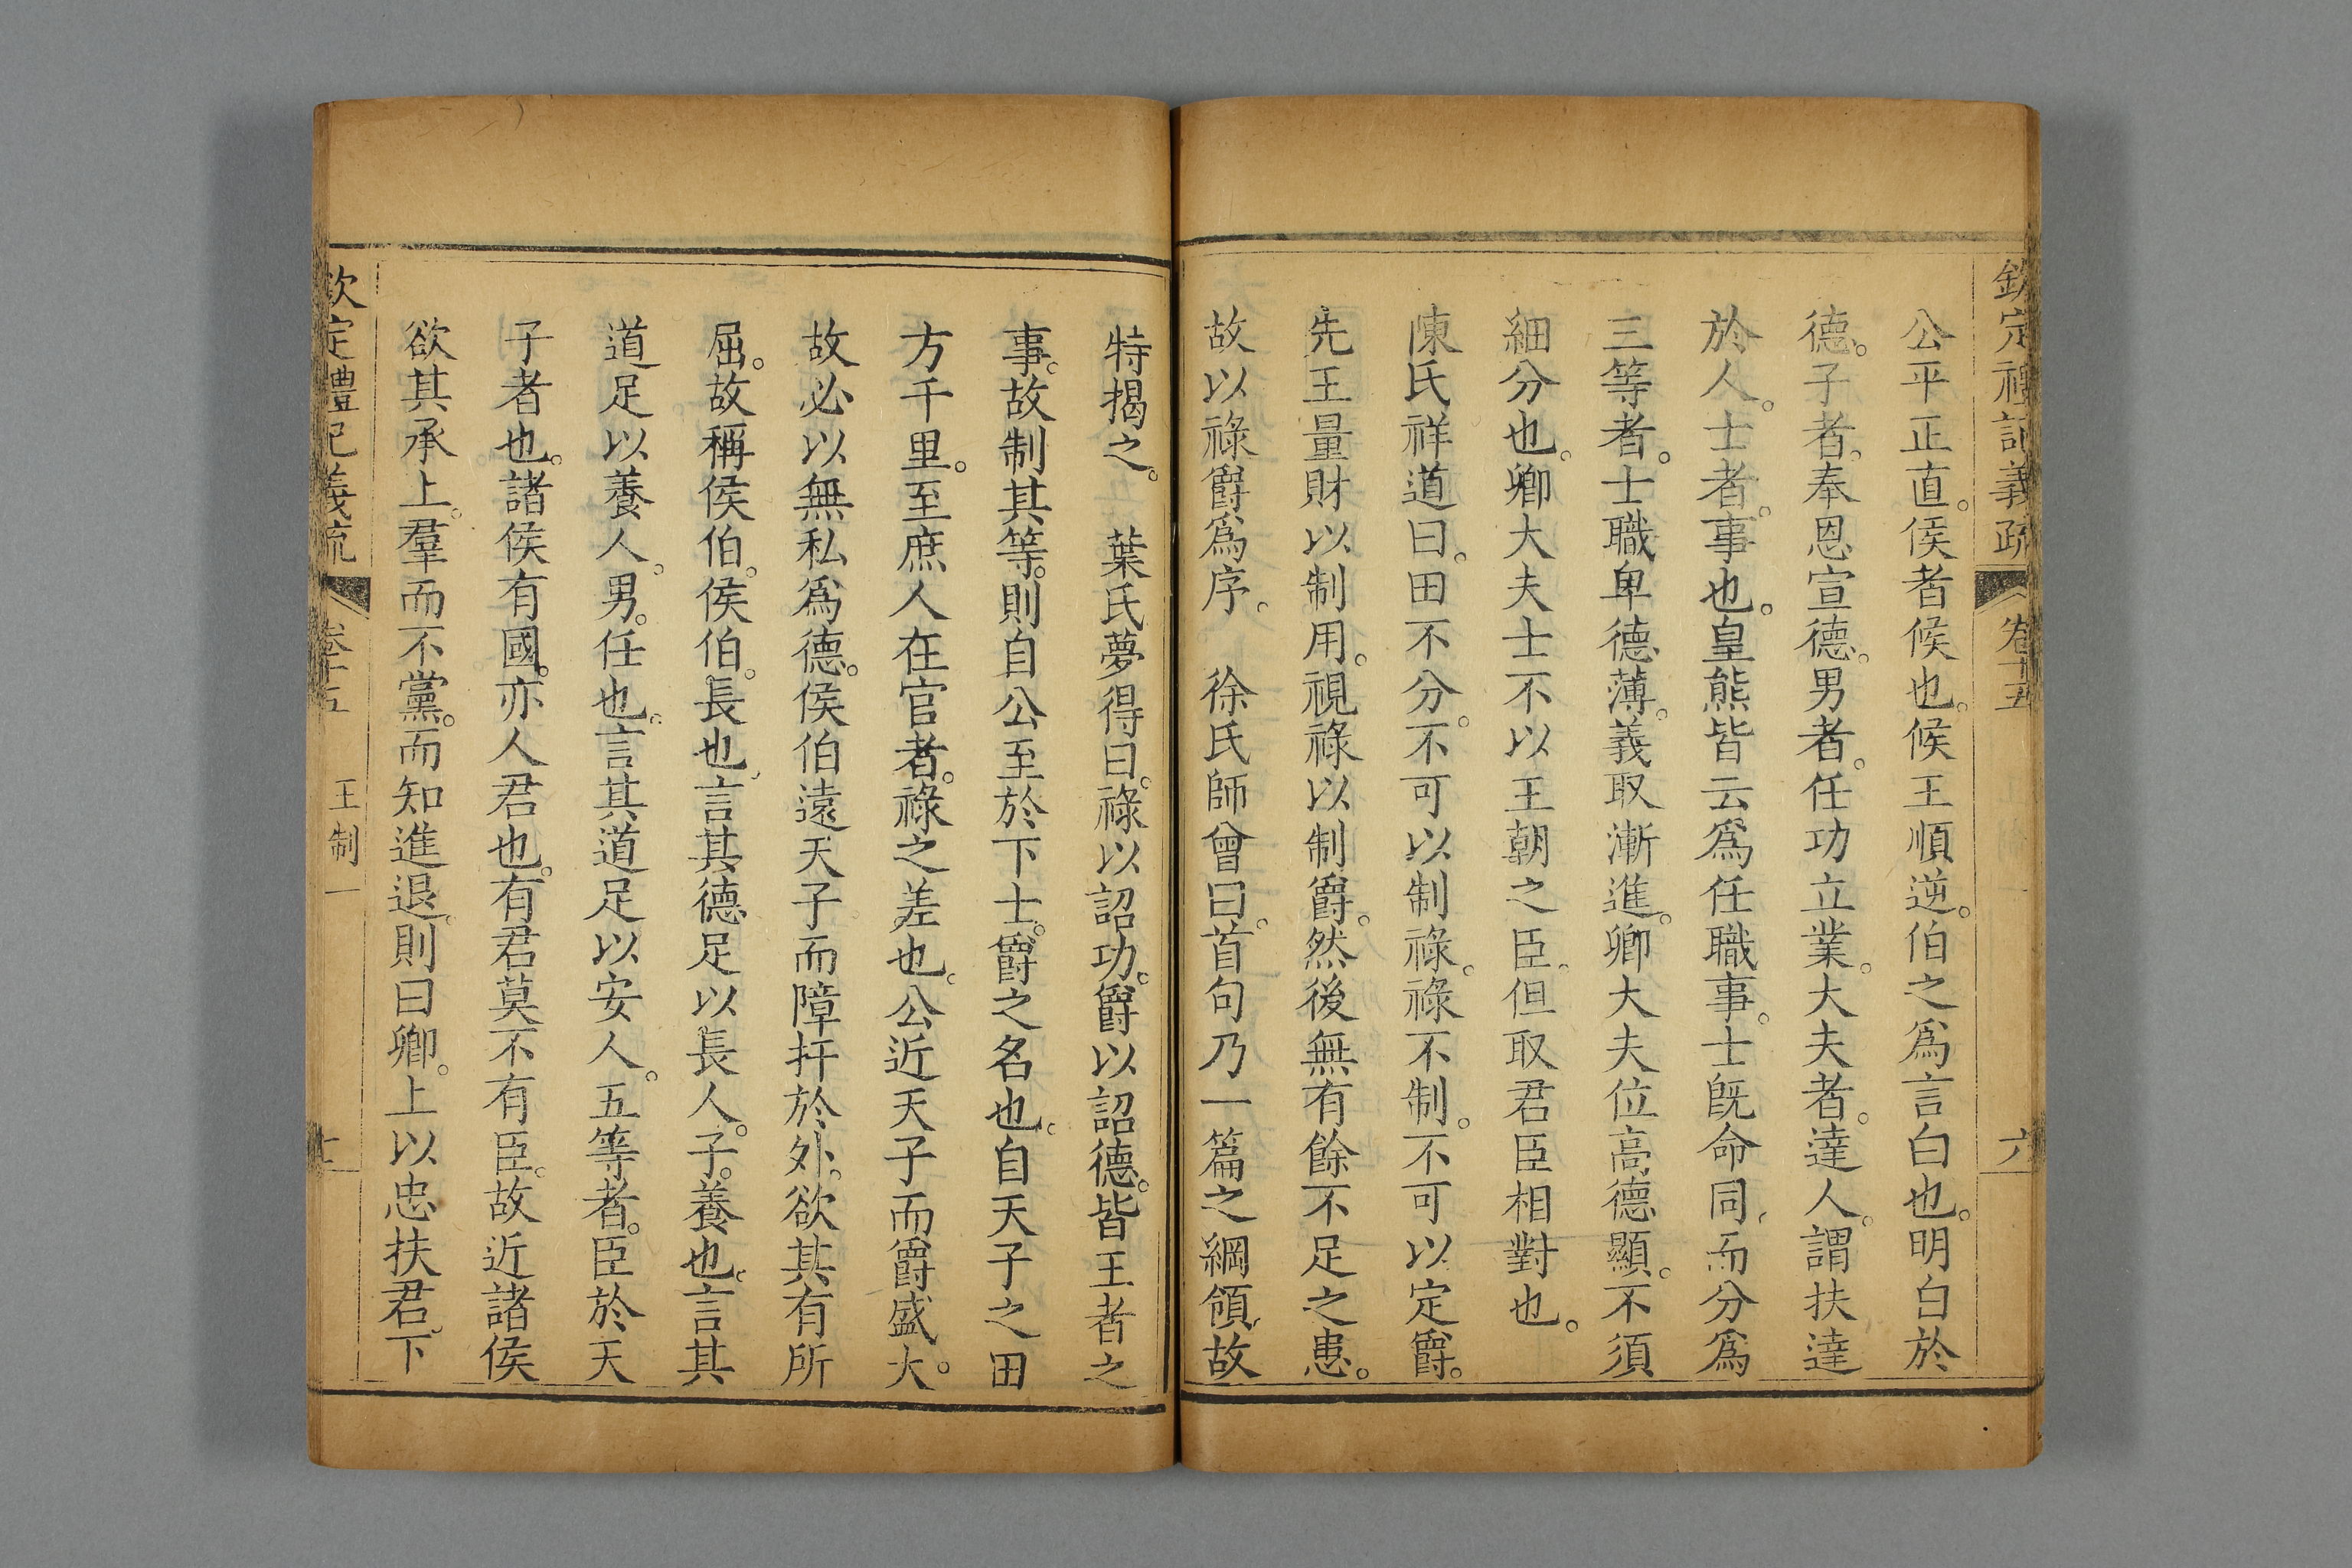 欽定禮記義疏 卷十五 六
公平正直。侯者候也。候王順逆。伯之爲言白也。明白於
德。子者。奉恩宣德。男者。任功立業。大夫者。達人。謂扶達
於人。士者。事也。皇熊皆云爲任職事。士旣命同。而分爲
三等者。士職卑德薄。義取漸進。卿大夫位高德顯。不須
細分也。卿大夫士不以王朝之臣。但取君臣相對也。
陳氏祥道曰。田不分。不可以制祿。祿不制。不可以定爵。
先王量財以制用。視祿以制爵。然後無有餘不足之患。
故以祿爵爲序。 徐氏師曾曰。首句乃一篇之綱領。故
特揭之。 葉氏夢得曰。祿以詔功。爵以詔德。皆王者之
事。故制其等。則自公至於下士。爵之名也。自天子之田
方千里。至庶人在官者。祿之差也。公近天子而爵盛大。
故必以無私爲德。侯伯遠天子而障扞於外。欲其有所
屈。故稱侯伯。侯伯。長也。言其德足以長人。子。養也。言其
道足以養人。男。任也。言其道足以安人。五等者。臣於天
子者也。諸侯有國。亦人君也。有君莫不有臣。故近諸侯
欲其承上。羣而不黨。而知進退。則曰卿。上以忠扶君。下
欽定禮記義疏 卷十五 王制一